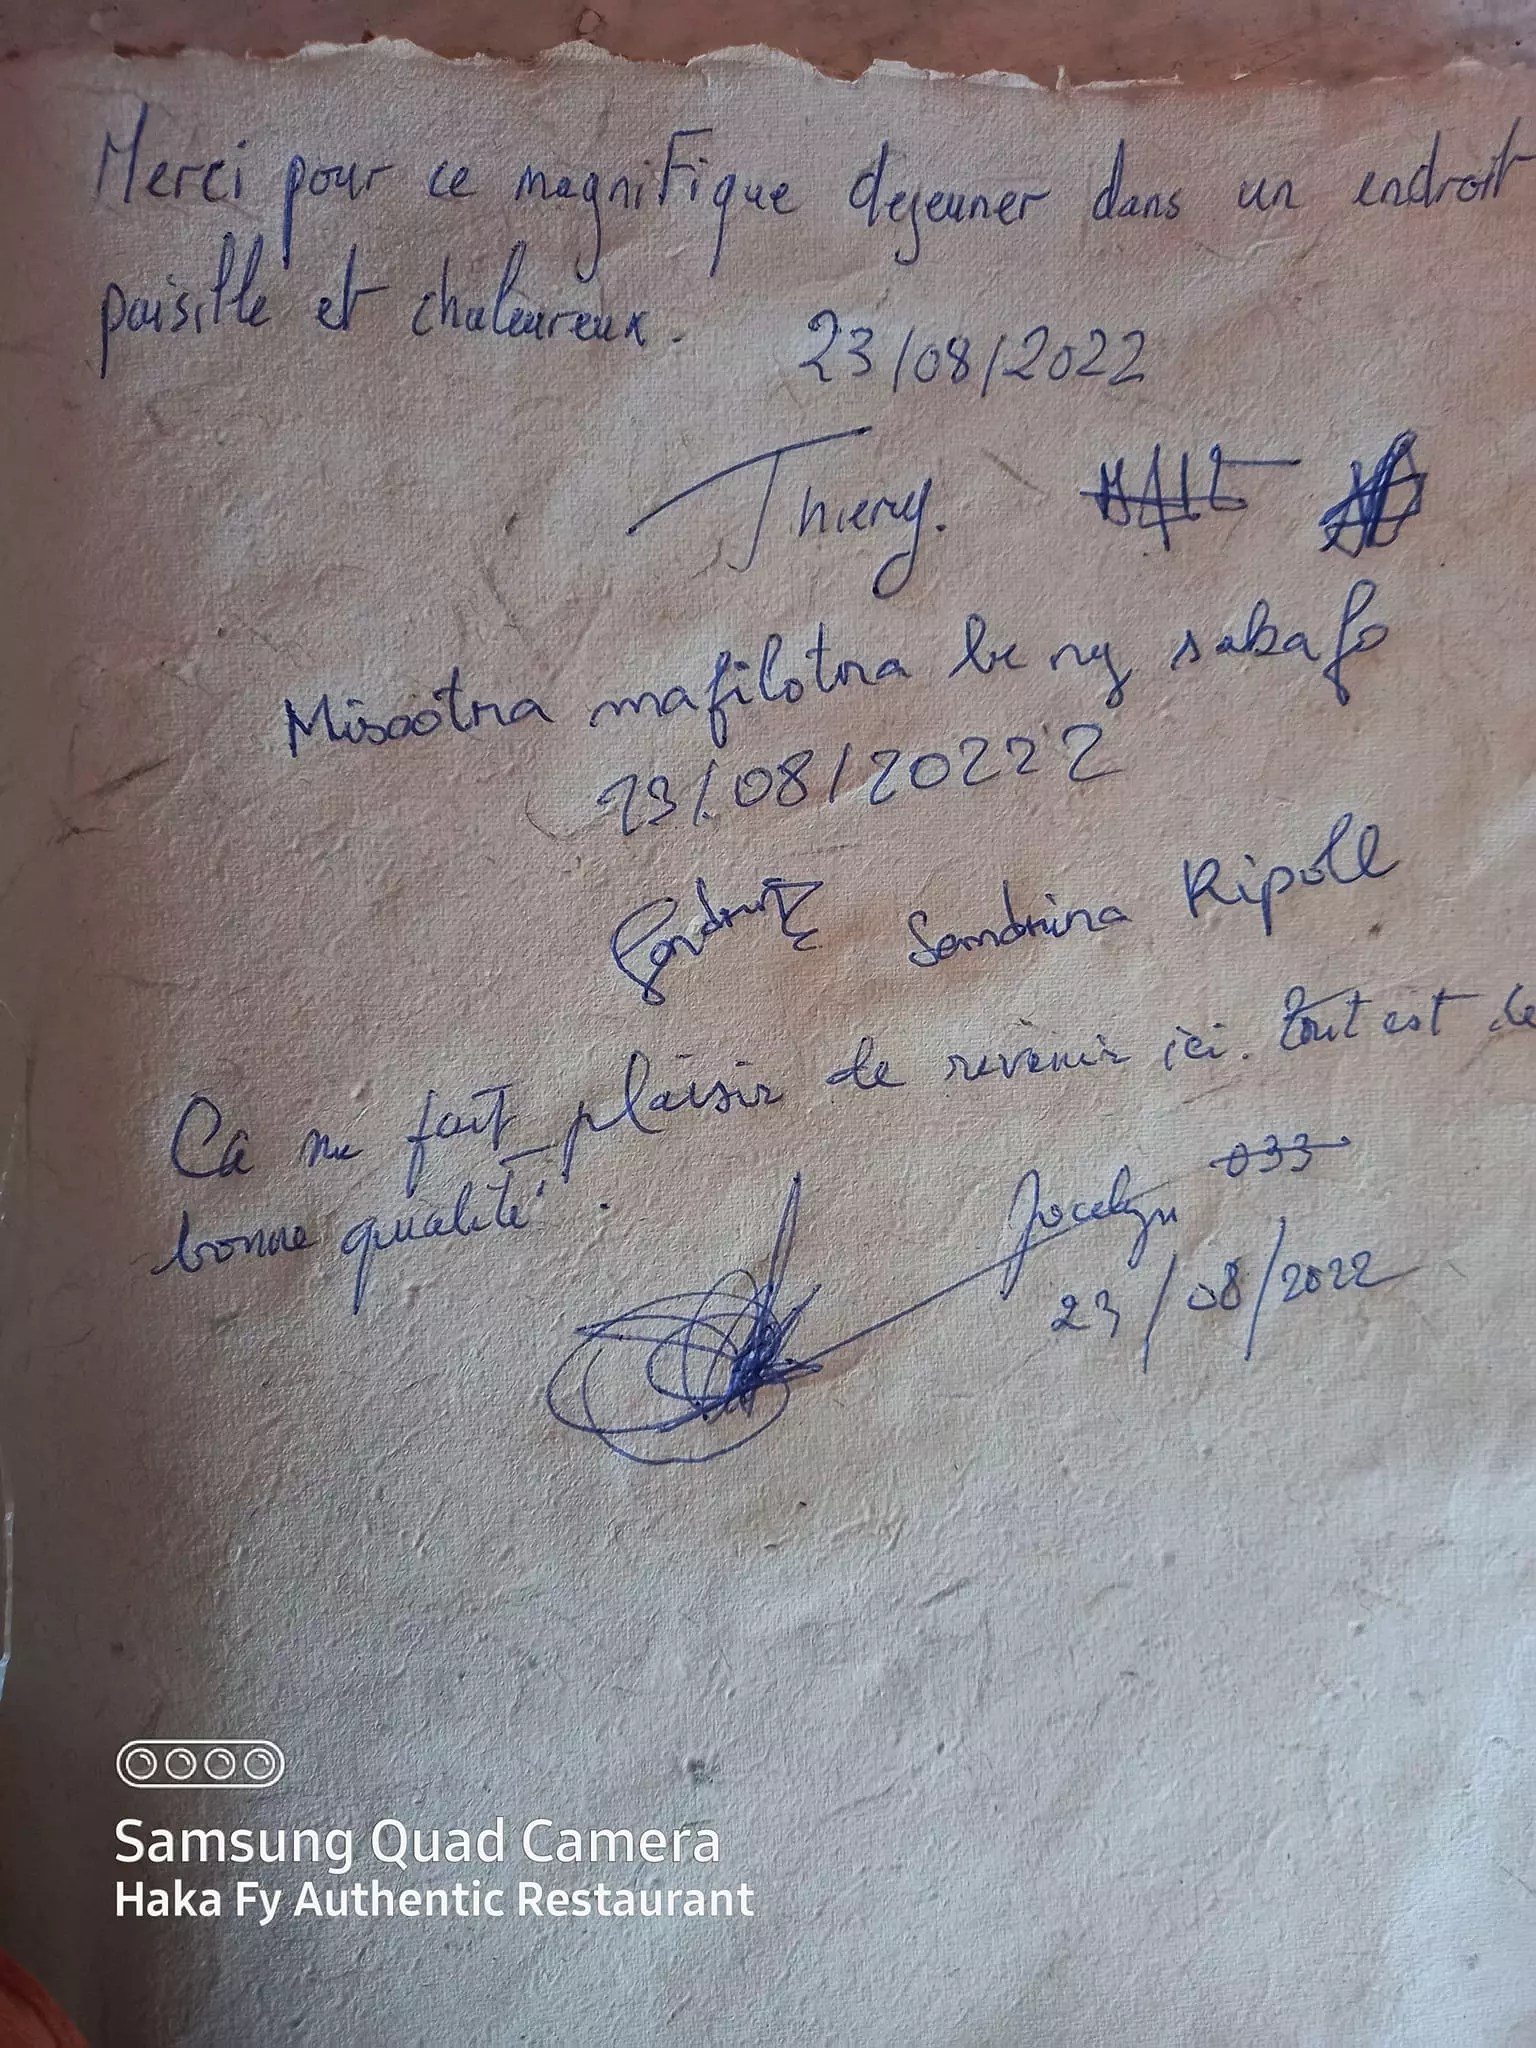 Merci pour ce magnifique dejeuner dans un endroit
paisible et chaleureux. 23/08/2022
Thierry.
Misaotra mafilotra be ny sakafo
23/08/20222
Sandrina Ripoll
Ca me fait plaisir de revenir ici. Tout est de
bonne qualité.
Jocelyn 033
23/08/2022
Samsung Quad Camera
Haka Fy Authentic Restaurant